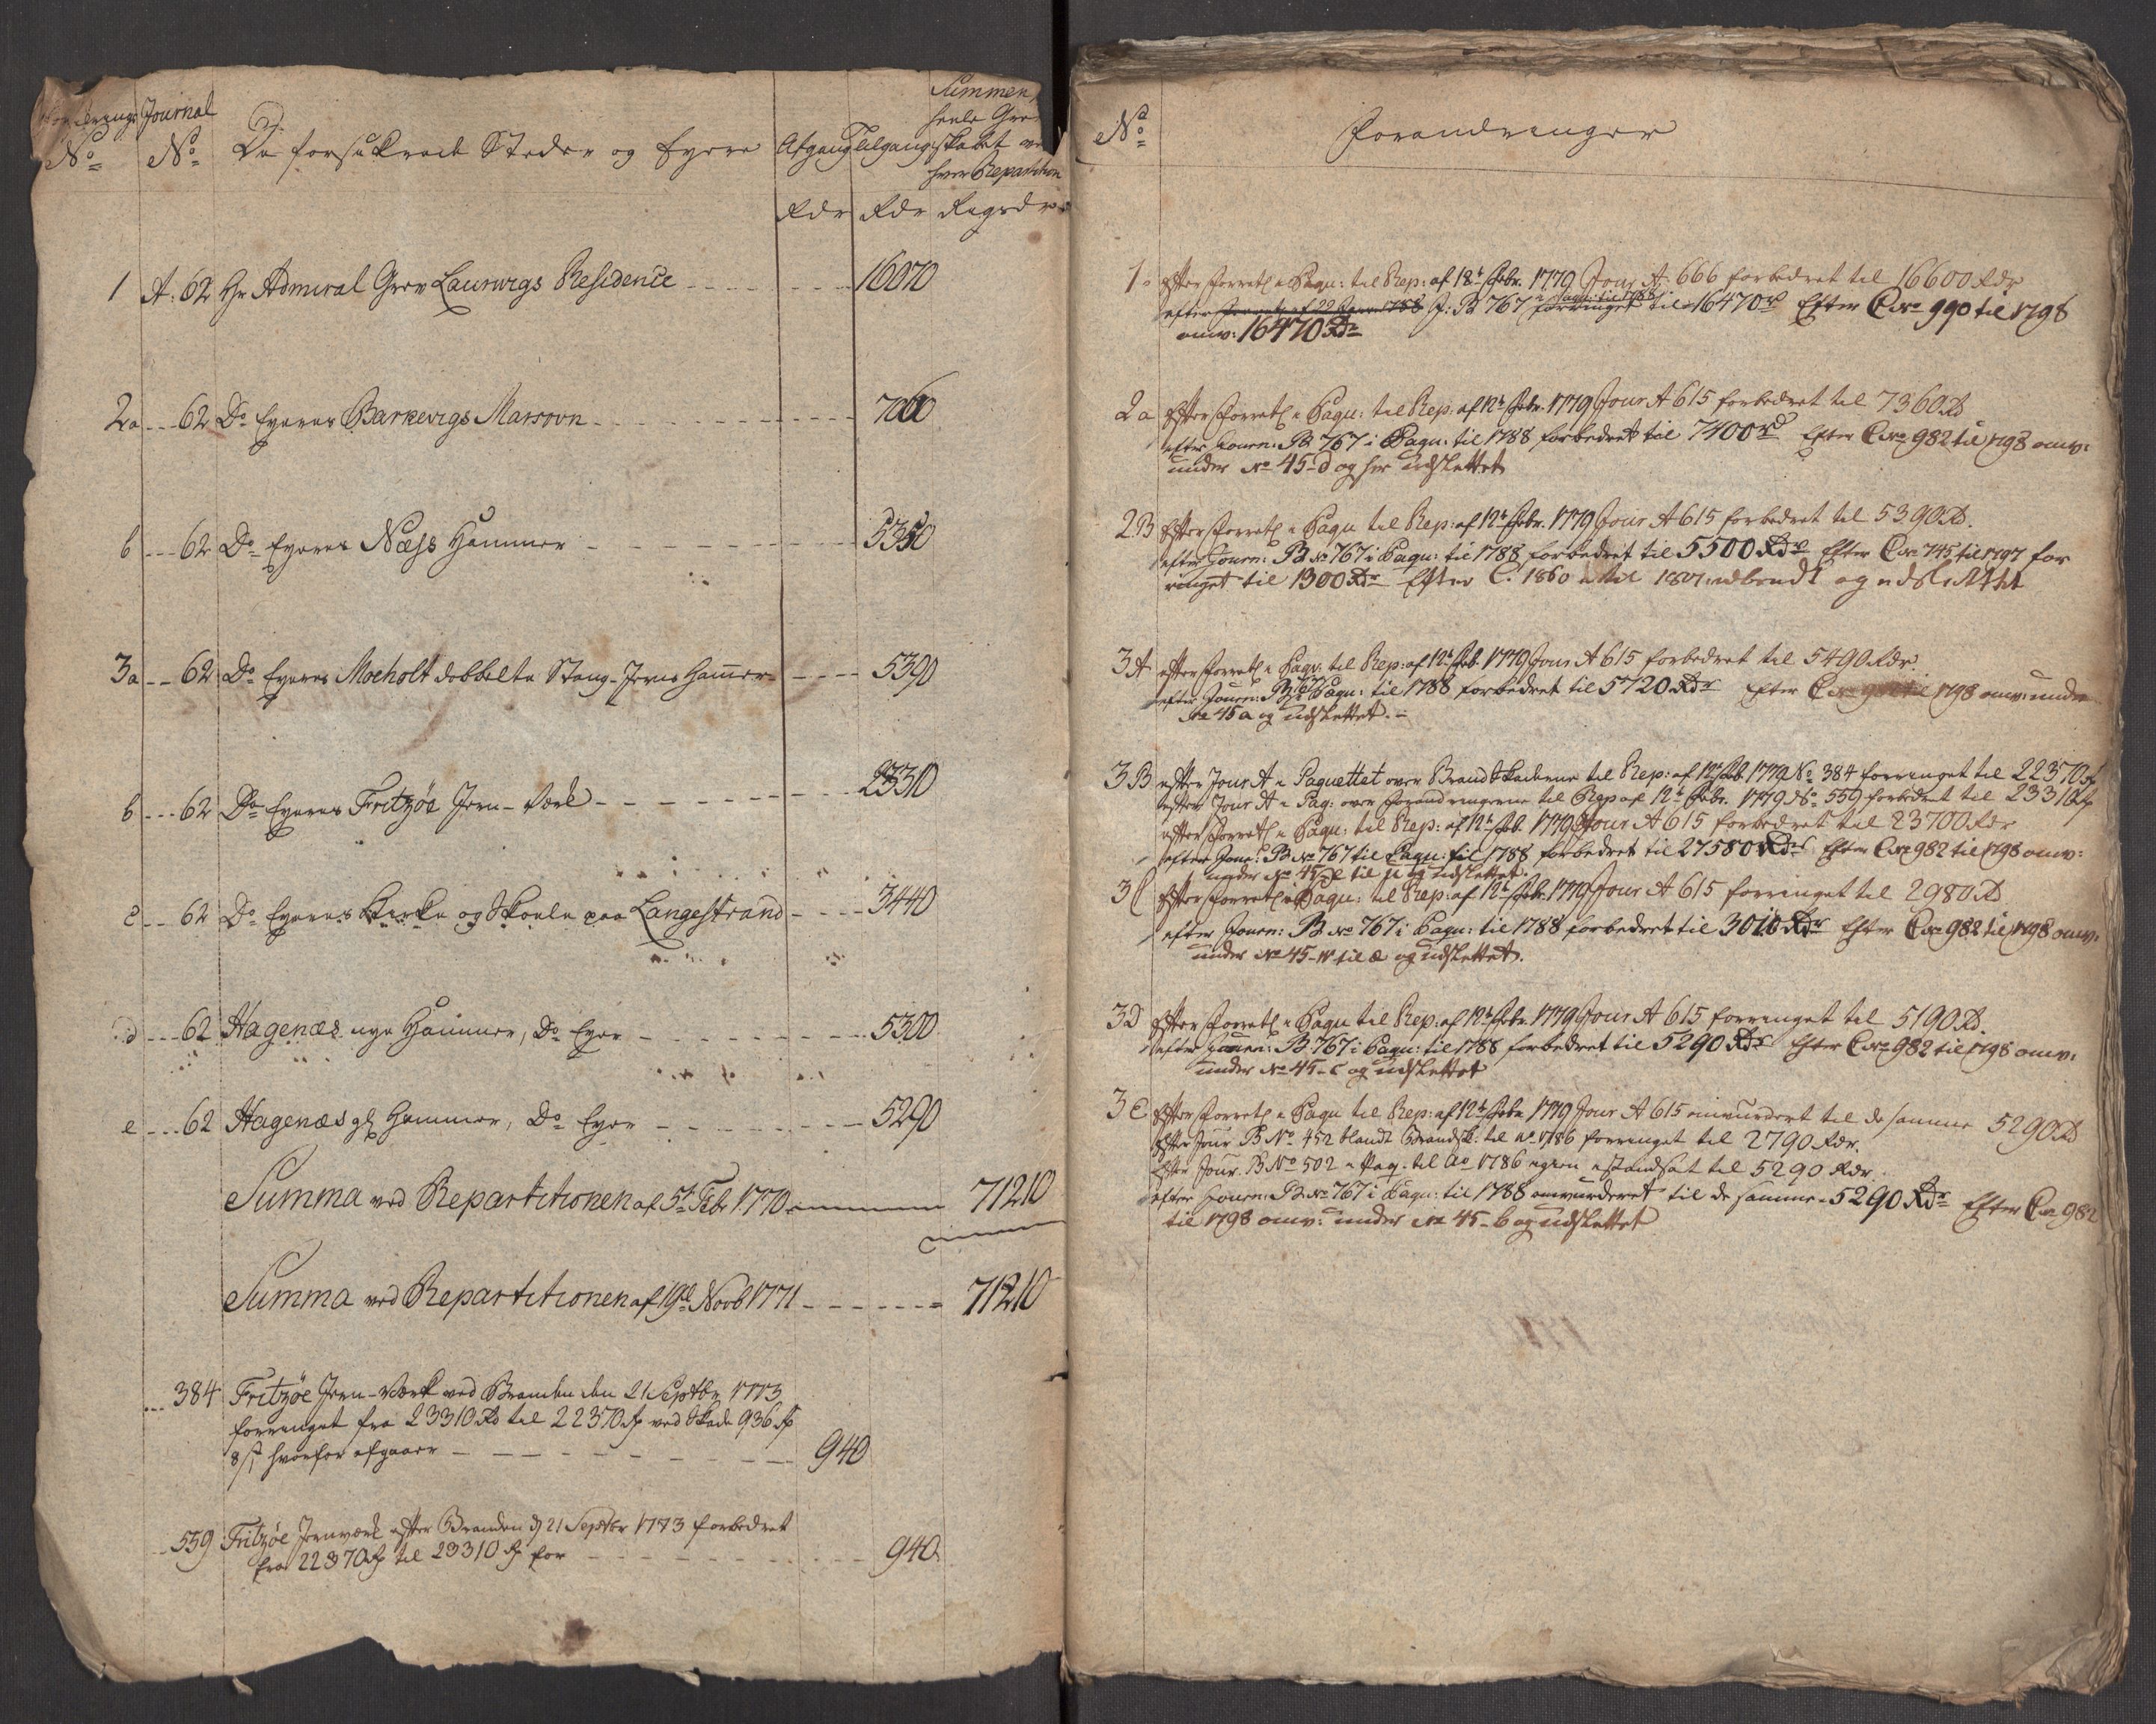 Journal
No No De forsikrede Steder og Eyere Afgang Tilgang
Summen
heele Gre
skabet ve
hver Repartition
Rdr Rdr Rigsdr
1 A: 62 Hr Admiral Grev Laurwigs Residence 16070
2a 62 Do Eyeres Barkevigs Marsovn
b 62 Do Eyeres Næss Hammer 5350
3a 62 Do Eyeres Moeholt dobbelte Stang-Jerns Hamer 5390
b 62 Do Eyeres Fritzøe Jern-Værk 23310
c 62 Do Eyeres Kirke og Skoele paa Langestrand 3440
d 62 Hagenæs nye Hammer, Do Eyer 5300
e 62 Hagenæs gl Hammer, Do Eyer 5290
Summa ved Repartitionen af 5t Febr 1770 71210
Summa ved Repartitionen af 19de Novb 1771 71210
384 Fritzøe Jern-Værk ved Branden den 21 Septbr 1773
forringet fra 23310 Rd til 22370 Rd ved Skade 936 Rd
8 s hvorfor afgaaer 940
559 Fritzøe Jernværk efter Branden d 21 Septbr 1773 forbedret
fra 22370 Rd til 23310 Rd for 940
No Forandringer
1 efter Forretn i Paqu: til Rep: af 12t Febr. 1779 Jour A 666 forbedret til 16600 Rdr
efter Forretn af 22 1788 J: B 767 i Paqu: til 1788 forringet til 16470 rd Efter C No 990 til 1798
omv: 16470 Rdr
2a efter Forretn i Paqu: til Rep: af 12t Febr. 1779 Jour A 615 forbedret til 7360 Rd
efter Journ: B 767 i Paqu: til 1788 forbedret til 7400 rd Efter C No 982 til 1798 omv:
under No 45-d og her udslettet
2.B efter Forretn i Paqu til Rep: af 12t Febr. 1779 Jour A 615 forbedret til 5390 Rd.
efter Journ: B No 767 i Paqu: til 1788 forbedret til 5500 Rdr Efter C No 745 til 1797 for
ringet til 1300 Rdr Efter C. 1860 til 1801 udslettet
3A efter Forretn i Paqu: til Rep: af 12t Feb. 1779 Jour A 615 forbedret til 5490 Rdr.
efter Journ: B 767 i Paqu: til 1788 forbedret til 5720 Rdr Efter C No 982 til 1798 omv: under
No 45 a og udslettet.
3B efter Jour A i Paquettet over Brand Skaderne til Rep: af 12t Feb. 1779 No 384 forringet til 22370 Rd
efter Jour A i Paq: over Forandringerne til Rep af 12t Febr. 1779 No 559 forbedret til 23310 Rd
efter Forretn i Paqu: til Rep: af 12t Feb. 1779 Jour A 615 forbedret til 23700 Rdr
efter Jour: B No 767 til Paqu: til 1788 forbedret til 27580 Rdr Efter C No 982 til 1798 omv:
under No 45-e til u og udslettet.
3C efter Forretn i Paqu: til Rep: af 12t Febr. 1779 Jour A 615 forringet til 2980 Rd
efter Journ: B No 767 i Paqu: til 1788 forbedret til 3010 Rdr Efter C No 982 til 1798 omv:
under No 45-w til æ og udslettet.
3D efter Forretn i Paqu til Rep: af 12t Febr. 1779 Jour A 615 forringet til 5190 Rd.
efter Journ: B 767 i Paqu: til 1788 forbedret til 5290 Rdr Efter C No 982 til 1798 omv:
under No 45-c og udslettet
3E efter Forretn i Paqu til Rep: af 12t Febr 1779 Jour A 615 omvurdert til de samme 5290 Rd
efter Jour B No 452 blandt Brandsk: til Ao 1786 forringet til 2790 Rdr.
Efter Jour. B No 502 i Paq. til Ao 1786 igien istandsat til 5290 Rdr.
efter Journ: B No 767 i Paqu: til 1788 omvurderet til de samme 5290 Rdr Efter C No 982
til 1798 omv: under No 45-b og udslettet